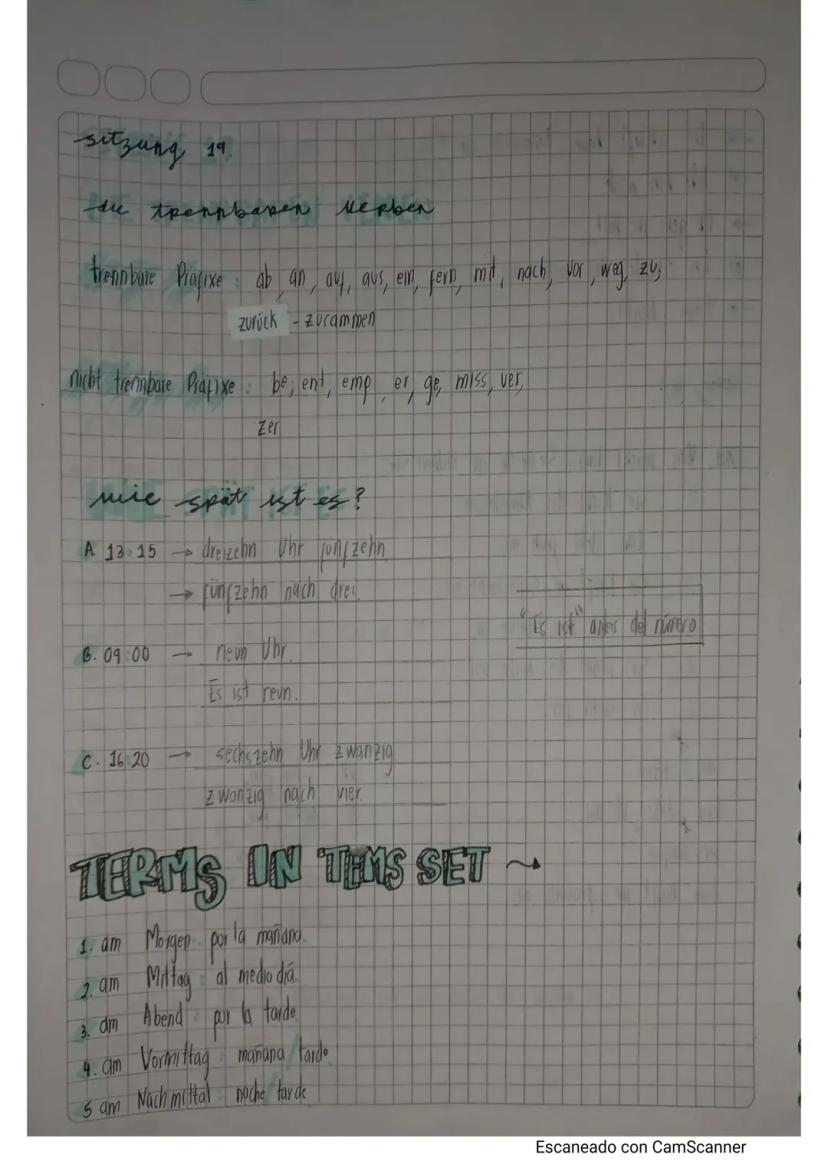 Sitzung 19.
die trennbaren Verben
trennbare Präfixe: ab, an, auf, aus, ein, fern, mit, nach, vor, weg, zu,
zurück - zusammen
nicht trennbare Präfixe: be, ent, emp, er, ge, miss, ver,
zer
wie spät ist es?
A. 13:15 → dreizehn Uhr fünfzehn
→ fünfzehn nach drei.
"Es ist" antes del número
B. 09:00 → neun Uhr.
Es ist neun.
C. 16:20 → sechszehn Uhr zwanzig
zwanzig nach vier.
TERMS IN TEMS SET →
1. am Morgen: por la mañana.
2. am Mittag: al medio día.
3. am Abend: por la tarde
4. am Vormittag: mañana/tarde
5 am Nachmittal: noche/tarde
Escaneado con CamScanner